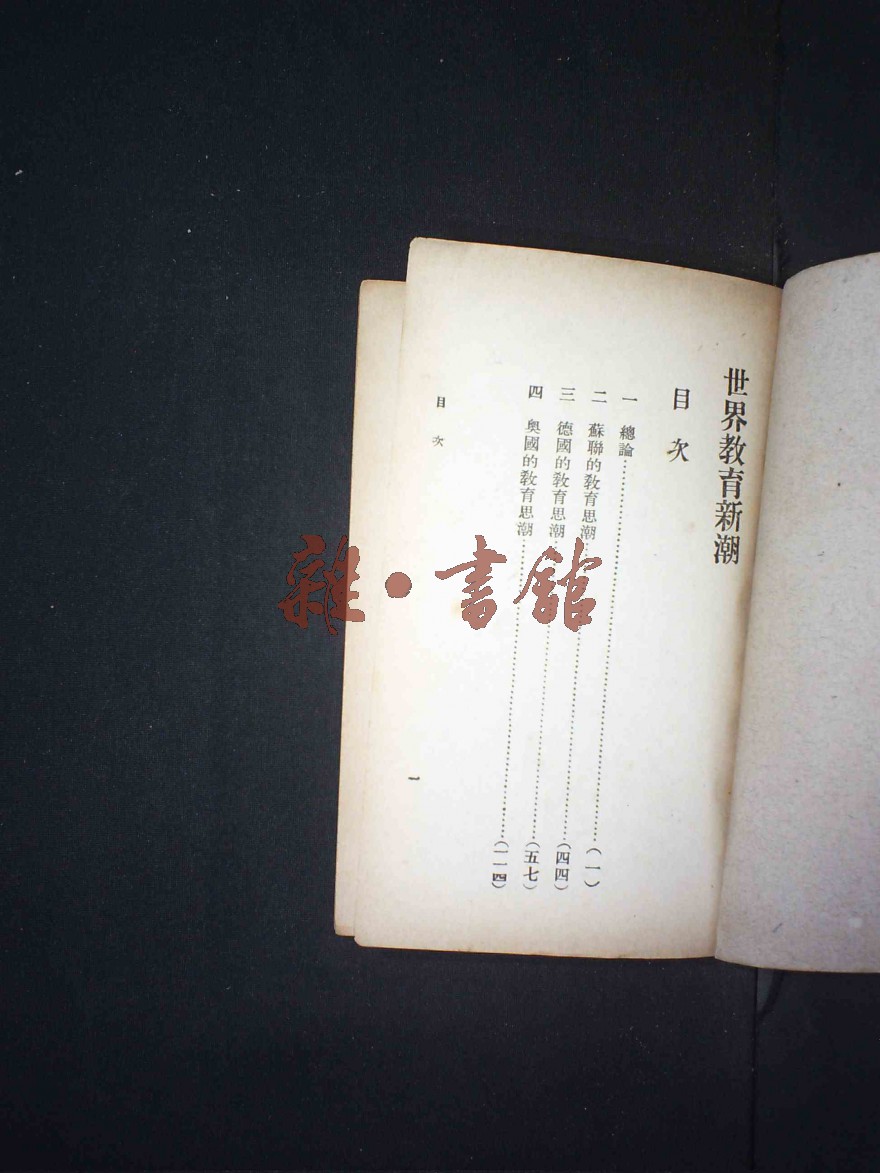 世界教育新潮
目次
一 總論……(一)
二 蘇聯的教育思潮……(四四)
三 德國的教育思潮……(五七)
四 奧國的教育思潮……(一一四)
目次
一
雜·書館